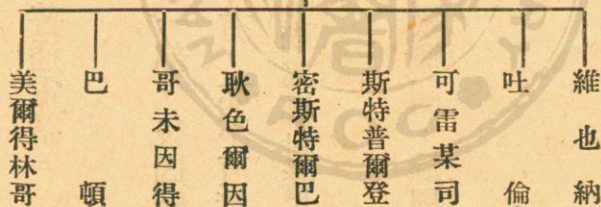 維也納
吐倫
可雷某司
斯特普爾登
密斯特爾巴
耿色爾因
哥未因得
巴頓
美爾得林哥